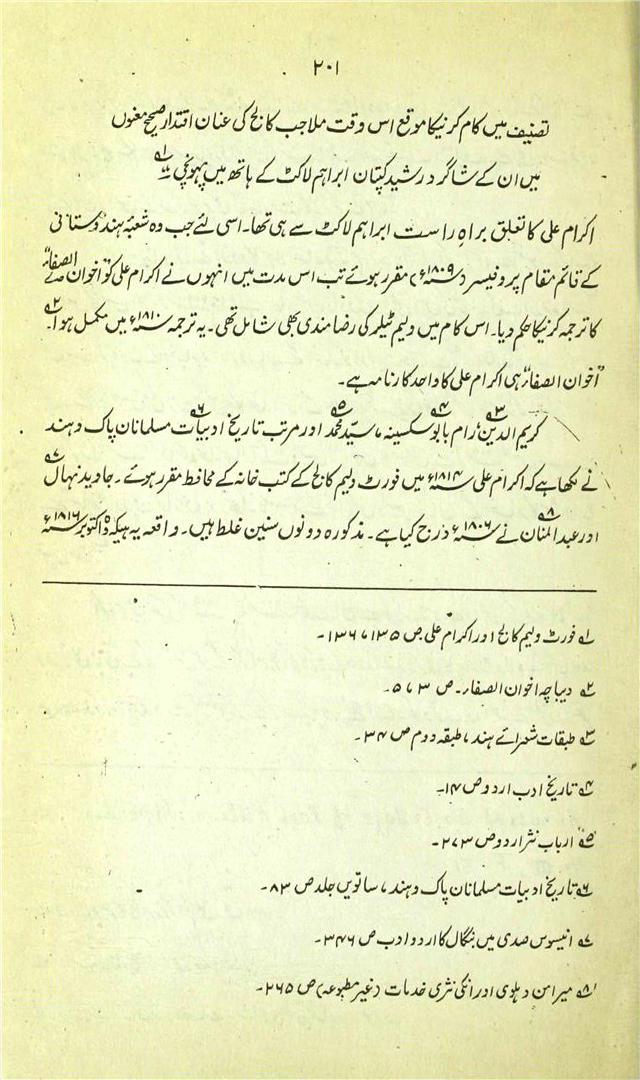 ۲۰۱
تصنیف میں کام کرنیکا موقع اس وقت ملا جب کالج کی عنان اقتدار صحیح معنوں
میں ان کے شاگرد رشید کپتان ابراہم لاکٹ کے ہاتھ میں پہونچی ؎۱
اکرام علی کا تعلق براہ راست ابراہم لاکٹ سے ہی تھا۔ اسی لئے جب وہ شعبۂ ہندوستانی
کے قائم مقام پروفیسر (۱۸۰۹ء) مقرر ہوئے تب اس مدت میں انہوں نے اکرام علی کو اخوان الصفاء
کا ترجمہ کرنیکا حکم دیا۔ اس کام میں ولیم ٹیلر کی رضا مندی بھی شامل تھی۔ یہ ترجمہ ۱۸۱۰ء میں مکمل ہوا۔ ؎۲
"اخوان الصفاء" ہی اکرام علی کا واحد کارنامہ ہے۔
کریم الدین؎۳ رام بابو سکسینہ؎۴، سید محمد؎۵ اور مرتب تاریخ ادبیات؎۶ مسلمانان پاک و ہند
نے لکھا ہے کہ اکرام علی ۱۸۱۴ء میں فورٹ ولیم کالج کے کتب خانہ کے محافظ مقرر ہوئے۔ جاوید نہال؎۷
اور عبد المنان؎۸ نے ۱۸۰۶ء درج کیا ہے۔ مذکورہ دونوں سنین غلط ہیں۔ واقعہ یہ ہیکہ ۵ اکتوبر ۱۸۱۶ء
؎۱ فورٹ ولیم کالج اور اکرام علی ص ۱۳۵، ۱۳۶۔
؎۲ دیباچہ اخوان الصفاء۔ ص ۳، ۵۔
؎۳ طبقات شعرائے ہند، طبقہ دوم ص ۳۴۔
؎۴ تاریخ ادب اردو ص ۱۴۔
؎۵ ارباب نثر اردو ص ۲۷۳۔
؎۶ تاریخ ادبیات مسلمانان پاک و ہند، ساتویں جلد ص ۸۳۔
؎۷ انیسوس صدی میں بنگال کا اردو ادب ص ۳۴۶۔
؎۸ میر امن دہلوی اور انکی نثری خدمات (غیر مطبوعہ) ص ۲۶۵۔